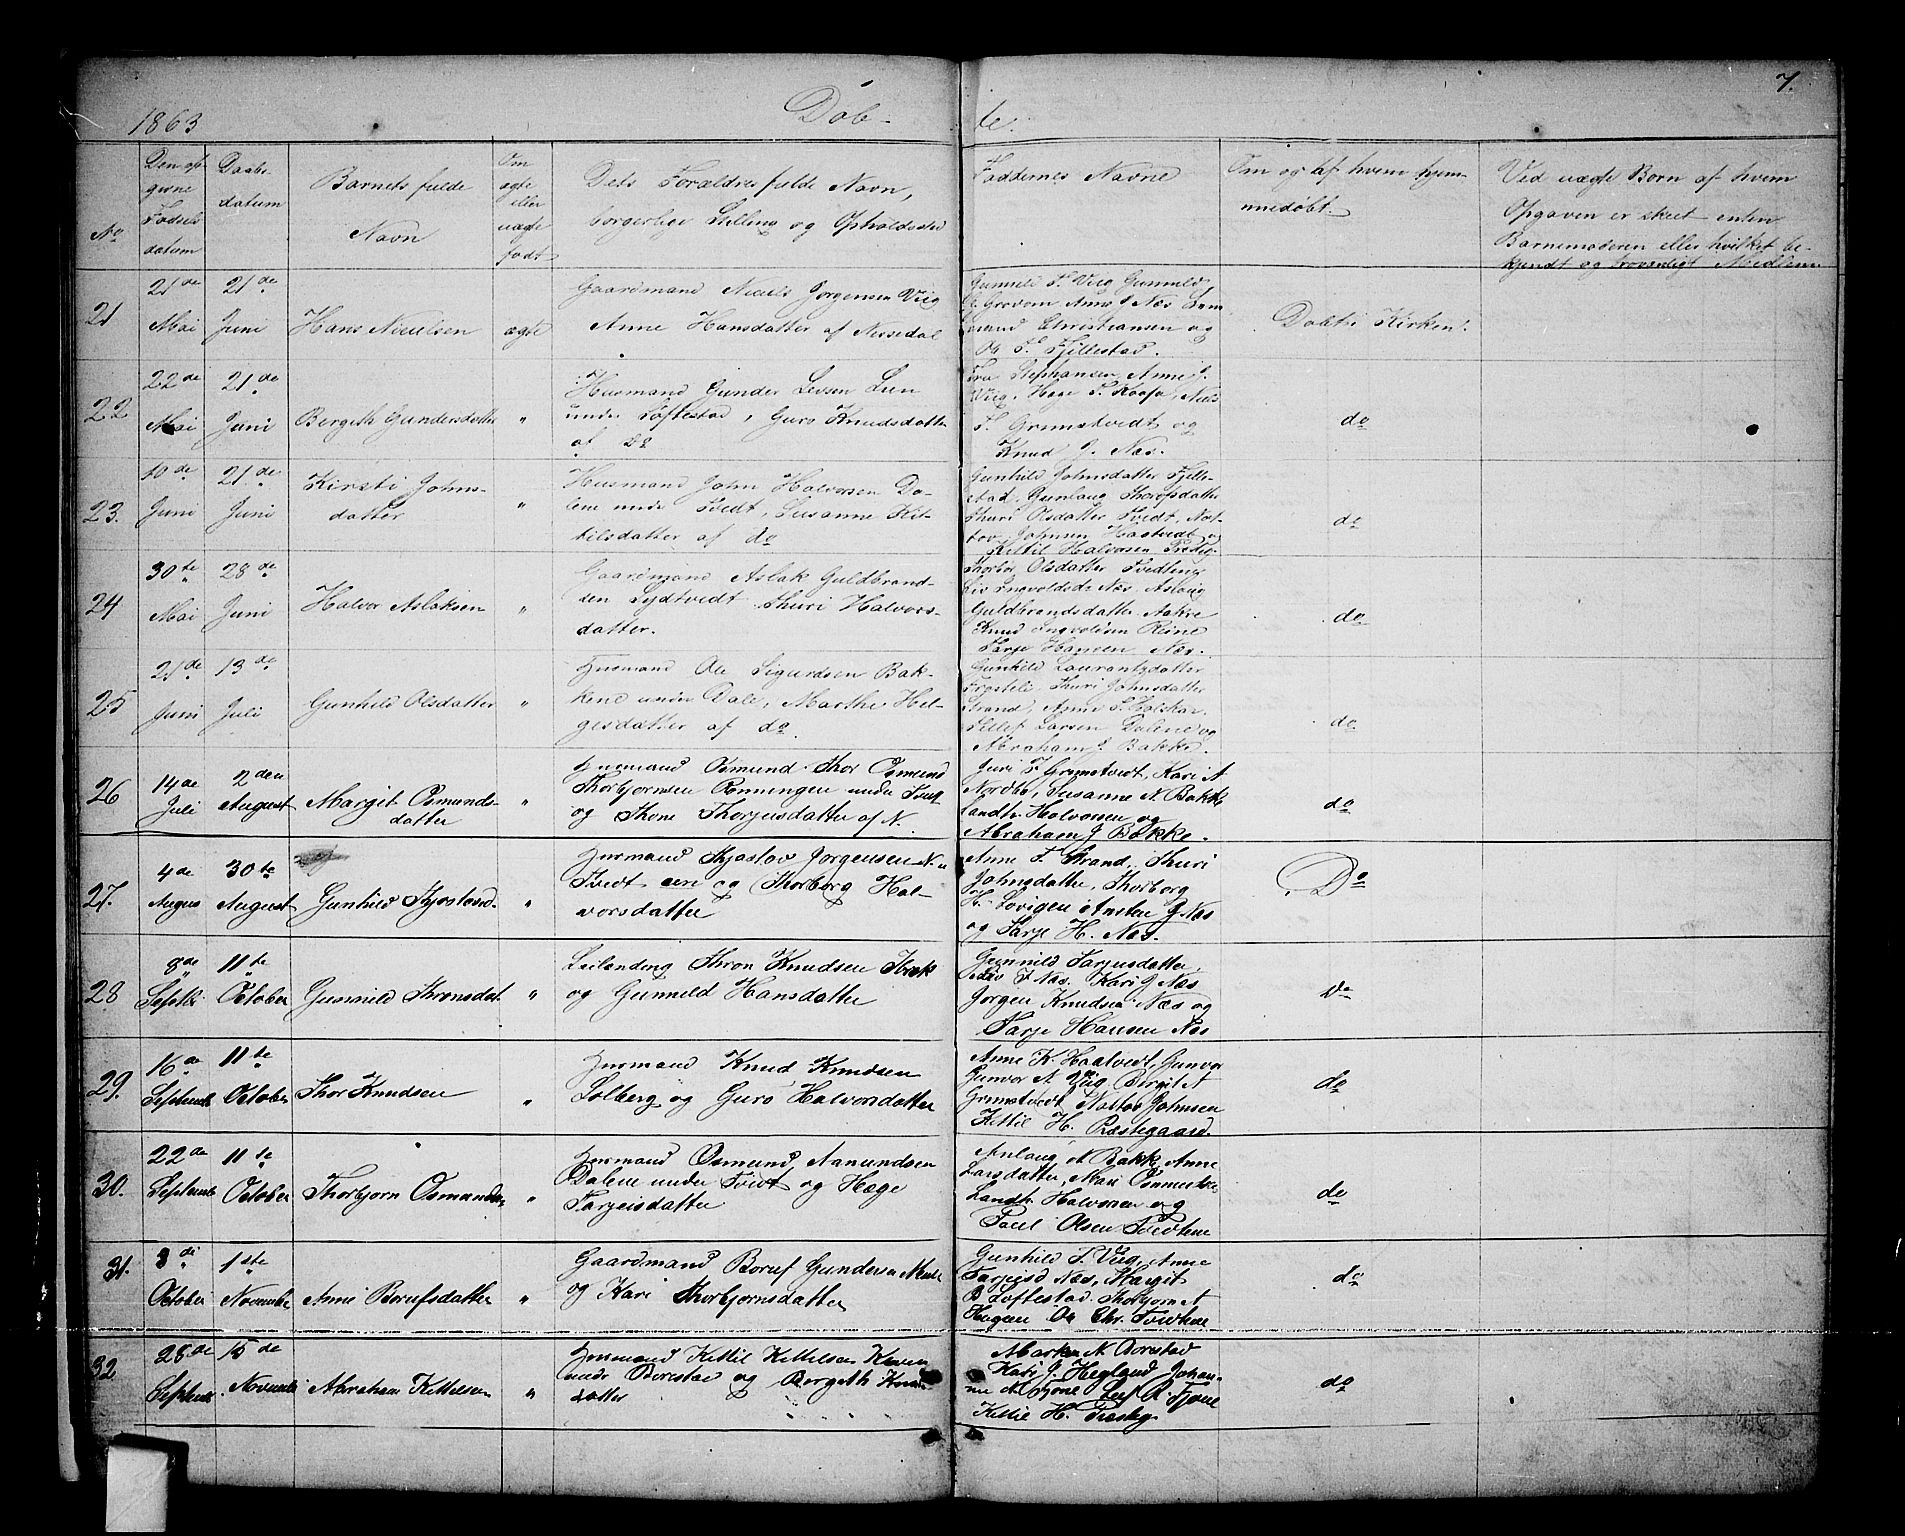 1863
Døb-
te.
7.
No
Den op-
givne
Fødsels
datum
Daabs
datum
Barnets fulde
Navn
Om
ægte
eller
uægte
født
Dets Forældres fulde Navn,
borgerlige Stilling og Opholdssted
Faddernes Navne
Om og af hvem hjem-
medøbt.
Ved uægte Børn af hvem
Opgaven er skeet enten
Barnemoderen eller hvilket be-
kjendt og troværdigt Medlem
21
21de
Mai
21de
Juni
Hans Nielsen
ægte
Gaardmand Niels Jørgensen Viig
Anne Hansdatter af Nissedal
Gunhild T. Viig Gunnild
Grovom Anne J Næs
Christiansen og
Os T. Fjillestad.
Døbt i Kirken.
22
22de
Mai
21de
Juni
Bergith Gundersdatter
"
Husmand Gunder Levsen Lien
under Toftestad, Guro Knudsdatter
af do
Stephansen, Anne J.
Viig, Hæge T. Kaasa, Niels
T. Grimstvedt og
Knud J. Næs.
do
23.
10de
Juni
21de
Juni
Kirsti Johns-
datter
"
Husmand John Halvorsen Da-
lene under Tvedt, Susanne Kit-
tilsdatter af do
Gunhild Johnsdatter Fjille-
stad, Gunlaug
Thuri Olsdatter Tvedt, Not-
tov Johnsen Haatvedt og
Kittil Halvorsen
do
24
30te
Mai
28de
Juni
Halvor Aslaksen
"
Gaardmand Aslak Guldbrand-
sen Lydtvedt Thuri Halvors-
datter.
Thorbør Olsdatter
Liv Ingvoldsd. Næs, Aslaug
Guldbrandsdatter Aakre
Knud Ingvoldsen
Tarje Hansen Næs.
do
25
21de
Juni
13de
Juli
Gunhild Olsdatter
"
Husmand Ole Sigurdsen Bak-
kene under Dale, Marthe Hel-
gesdatter af do.
Gunhild Laurantzdatter
Thuri Johnsdatter
Strand, Anne
Tellef Larsen Dalene og
Abraham J. Bakke.
do
26
14de
Juli
2den
August
Margit Osmunds-
datter
"
Husmand Osmund Thor Osmund
Thorbjørnsen Rønningen under Tvedt
og Thone Thorjeisdatter af N.
Juri T Grimstvedt, Kari A
Nordbø, Susanne N. Bakke
Landtr. Halvorsen og
Abraham J Bakke.
do
27.
4de
Augus
30te
August
Gunhild Thjostovsd.
"
Husmand Thjostov Jørgensen N.
Tvedt og Thorborg Hal-
vorsdatter
Anne T. Strand, Thuri
Johnsdatter, Thorborg
H. Lovigen Ansten J Næs
og Tarje H. Næs.
Do
28
8de
Septbr
11te
October
Gunnild Thronsdat
"
Leilænding Thron Knudsen
og Gunnild Hansdatter
Gunnild Tarjeisdatter,
J Næs. Kari J Næs
Jørgen Knudsen Næs og
Tarje Hansen Næs
do
29.
16de
Septembr
11te
October
Thor Knudsen
"
Husmand Knud Knudsen
Solberg og Guro Halvorsdatter
Anne K. Haatvedt, Gunvor
Gunvor A Viig Bergit A
Grimstvedt, Nottov Johnsen
Kittil H. Præstegaard.
do
30.
22de
Septembr
11te
October
Thorbjørn Osmundsen
"
Husmand Osmund Aanundsen
Dalene under Tvedt og Hæge
Tarjeisdatter
Anlaug A Bakk, Anne
Larsdatter, Mari
Landtr. Halvorsen og
Poul Olsen Tvedtene
do
31.
3di
October
1ste
Novembr
Anne Borufsdatter
"
Gaardmand Boruf Gundersen
og Kari Thorbjørnsdatter
Gunhild T. Viig, Anne
Tarjeisd Næs, Margit
B Loftestad, Thorbjørn A
Hagene Os Chr. Tvedtene
do
32
28de
Septembr
15de
Novembr
Abraham Kittelsen
"
Husmand Kittil Kittelsen
under Borestad og Bergith Knuds-
datter
Maren N Borestad
Kari J. Hegland Johan-
ne N Fjone Leif O. Fjone
Kittil H.
do